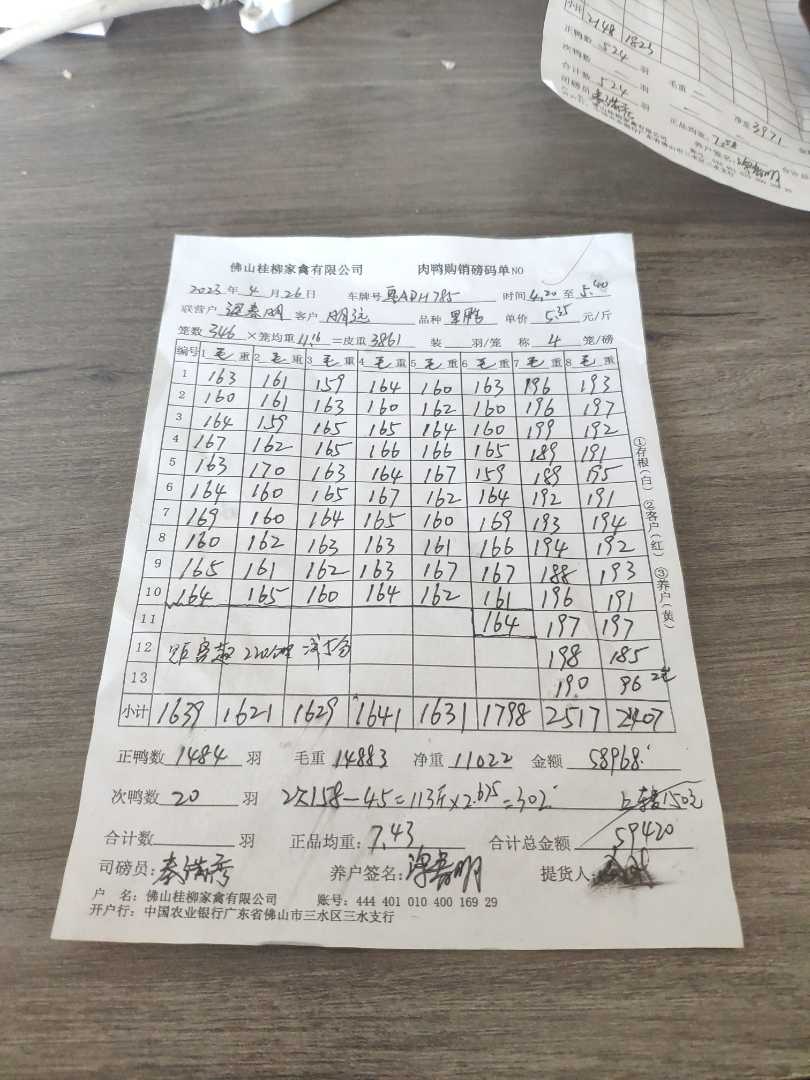 小计 2148 1823
正鸭数 524 羽 毛重 一
次鸭数 一 羽 净重 3971
合计数 524 羽 正品均重: 7.58
司磅员 养户签名:
佛山桂柳家禽有限公司 肉鸭购销磅码单 NO
2023 年 4 月 26 日 车牌号 粤ADH785 时间 4.20 至 5.40
联营户 客户 品种 单价 5.35 元/斤
笼数 346 ×笼均重 11.16 =皮重 3861 装 羽/笼 称 4 笼/磅
编号 1 毛 重 2 毛 重 3 毛 重 4 毛 重 5 毛 重 6 毛 重 7 毛 重 8 毛 重
1 163 161 159 164 160 163 196 193
2 160 161 163 160 162 160 196 197
3 164 159 165 165 164 160 199 192
4 167 162 165 166 166 165 189 191
5 163 170 163 164 167 159 189 195
6 164 160 165 167 162 164 192 191
7 169 160 164 165 160 169 193 194
8 160 162 163 163 161 166 194 192
9 165 161 162 163 167 167 188 193
10 164 165 160 164 162 161 196 191
11 164 197 197
12 198 185
13 190 96
小计 1639 1621 1629 1641 1631 1798 2517 2407
①存根(白) ②客户(红) ③养户(黄)
正鸭数 1484 羽 毛重 14883 净重 11022 金额 58968.
次鸭数 20 羽 次158-45=113斤×2.675=302.
合计数 羽 正品均重: 7.43 合计总金额 59420
司磅员: 养户签名: 提货人:
户 名: 佛山桂柳家禽有限公司 账号: 444 401 010 400 169 29
开户行: 中国农业银行广东省佛山市三水区三水支行